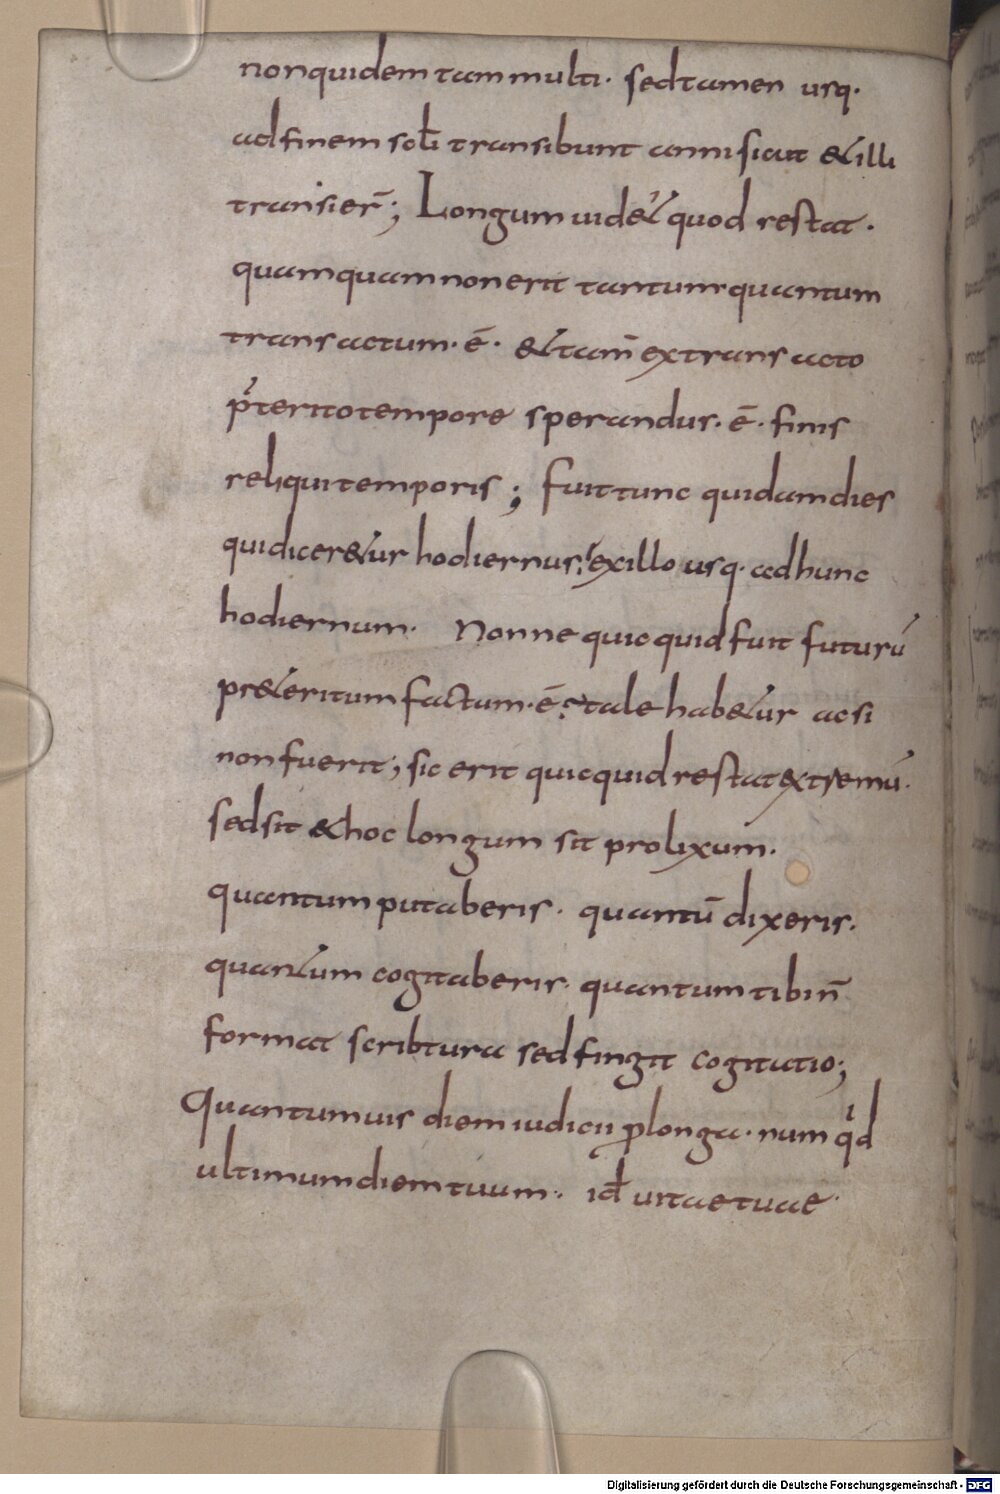 nonquidem tam multi· sed tamen usq·
adfinem sołi transibunt anni sicut & illi
transier̄; Longum uidet᷑ quod restat·
quamquam non erit tantum quantum
transactum· ē· & tam̄ extransacto
p̄terito tempore sperandus· ē· finis
reliqui temporis; fuit tunc quidam dies
qui diceretur hodiernus; exillo usq· ad hunc
hodiernum· Nonne quicquid fuit futurū
pr&eritum factum· ē? tale hab&ur acsi
non fuerit; sic erit quicquid restat extremū·
sed sit & hoc longum sit prolixum·
quantum putaberis· quantū dixeris·
quantum cogitaberis· quantum tibi n̄
format scribtura sed fingit cogitatio;
Quantumuis diem iudicii ꝓlonga· num qͥd
ultimum diem tuum· id̄ uitae tuae·
Digitalisierung gefördert durch die Deutsche Forschungsgemeinschaft - DFG